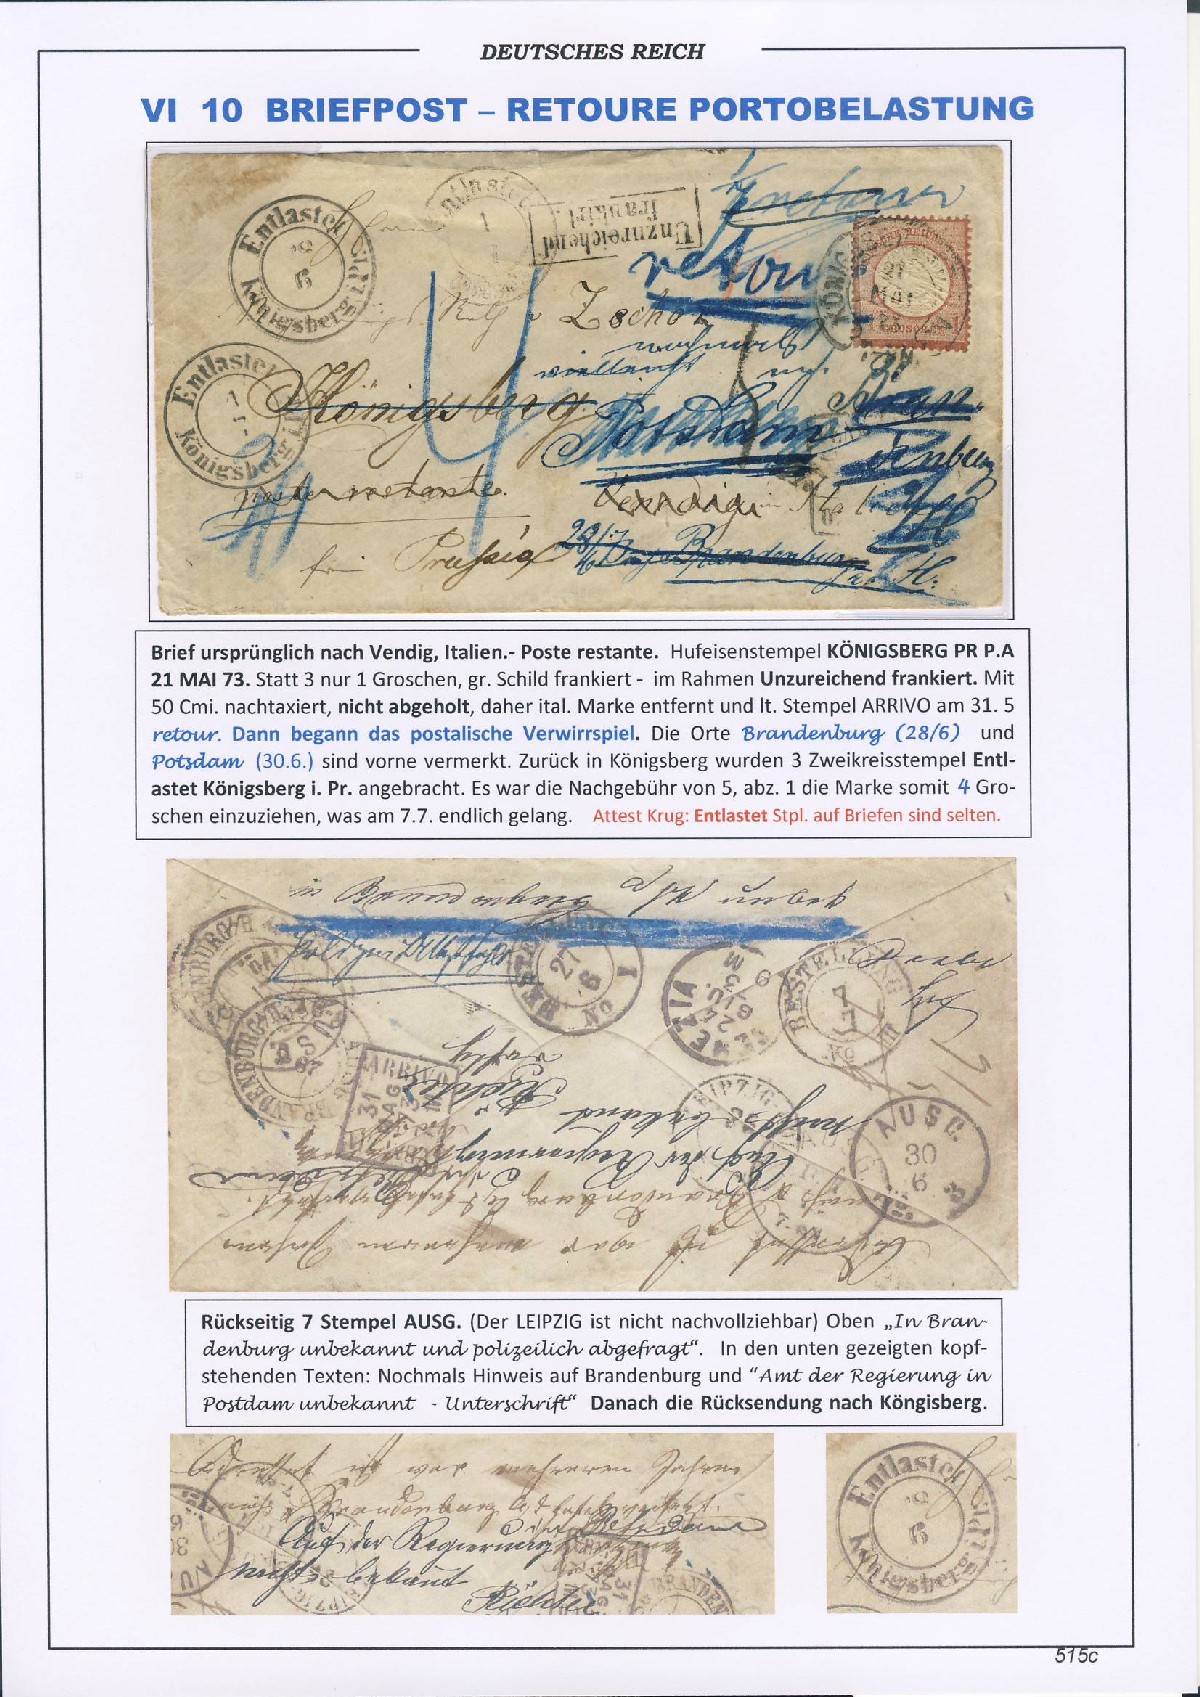 DEUTSCHES REICH
VI 10 BRIEFPOST – RETOURE PORTOBELASTUNG
Entlastet
8
6
Königsberg i/Pr.
Unzureichend
frankirt.
retour
retour
21
MAI
73
Entlastet
Königsberg
Königsberg.
4
vielleicht
Potsdam
poste restante.
Brandenburg
Brief ursprünglich nach Vendig, Italien.- Poste restante. Hufeisenstempel KÖNIGSBERG PR P.A
21 MAI 73. Statt 3 nur 1 Groschen, gr. Schild frankiert - im Rahmen Unzureichend frankiert. Mit
50 Cmi. nachtaxiert, nicht abgeholt, daher ital. Marke entfernt und lt. Stempel ARRIVO am 31. 5
retour. Dann begann das postalische Verwirrspiel. Die Orte Brandenburg (28/6) und
Potsdam (30.6.) sind vorne vermerkt. Zurück in Königsberg wurden 3 Zweikreisstempel Entl-
astet Königsberg i. Pr. angebracht. Es war die Nachgebühr von 5, abz. 1 die Marke somit 4 Gro-
schen einzuziehen, was am 7.7. endlich gelang. Attest Krug: Entlastet Stpl. auf Briefen sind selten.
in Brandenburg a/H unbek
27
6
BESTELLUNG
7
7
III
ARRIVO
31
MAG
73
LEIPZIG
AUSG.
30
6
Rückseitig 7 Stempel AUSG. (Der LEIPZIG ist nicht nachvollziehbar) Oben „In Bran-
denburg unbekannt und polizeilich abgefragt“. In den unten gezeigten kopf-
stehenden Texten: Nochmals Hinweis auf Brandenburg und “Amt der Regierung in
Postdam unbekannt - Unterschrift“ Danach die Rücksendung nach Köngisberg.
Adressat ist vor mehreren Jahren
Auf der Regierung
nicht bekannt
Richter
Entlastet
8
6
Königsberg i/Pr.
515c